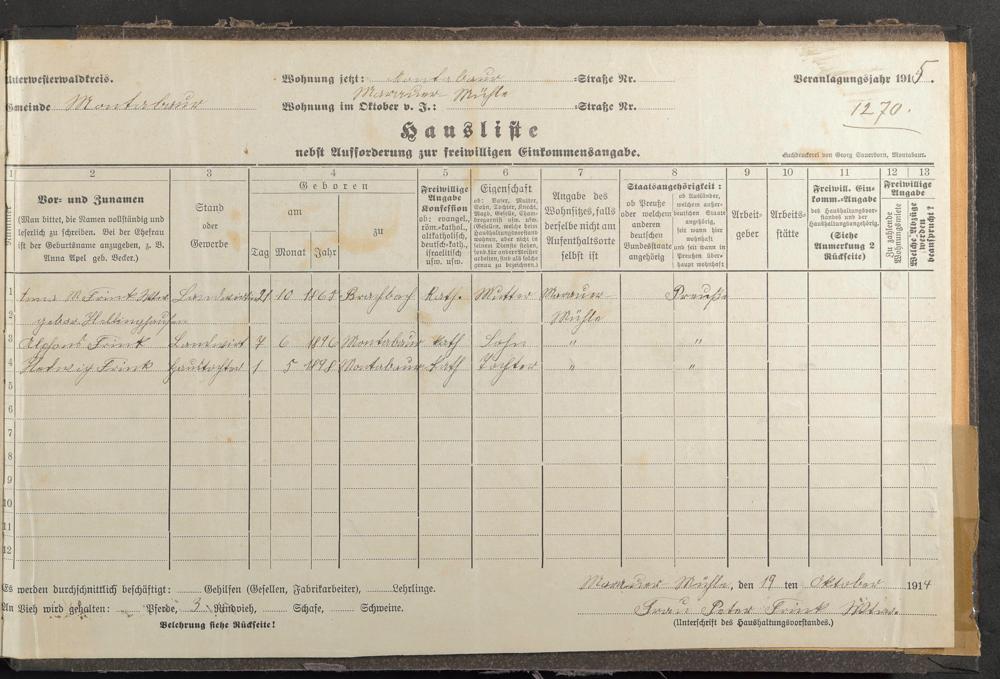 Unterwesterwaldkreis.
Wohnung jetzt: Montabaur =Straße Nr.
Veranlagungsjahr 1915.
Gemeinde Montabaur
Marauer Mühle
Wohnung im Oktober v. J.: =Straße Nr.
1270.
Hausliste
nebst Aufforderung zur freiwilligen Einkommensangabe.
Buchdruckerei von Georg Sauerborn, Montabaur.
1 2 3 4 5 6 7 8 9 10 11 12 13
Nummer
Vor- und Zunamen
(Man bittet, die Namen vollständig und
leserlich zu schreiben. Bei der Ehefrau
ist der Geburtsname anzugeben, z. B.
Anna Apel geb. Becker.)
Stand
oder
Gewerbe
Geboren
am
zu
Tag Monat Jahr
Freiwillige
Angabe
Konfession
ob: evangel.,
röm.-kathol.,
altkatholisch,
deutsch-kath.,
israelitisch
usw. usw.
Eigenschaft
ob: Vater, Mutter,
Sohn, Tochter, Knecht,
Magd, Geselle, Cham-
bregarnist usw. usw.
(Gesellen, welche beim
Haushaltungsvorstand
wohnen, aber nicht in
seinen Diensten stehen,
also für andere Meister
arbeiten, sind als solche
genau zu bezeichnen.)
Angabe des
Wohnsitzes, falls
derselbe nicht am
Aufenthaltsorte
selbst ist
Staatsangehörigkeit:
ob Preuße
oder welchem
anderen
deutschen
Bundesstaate
angehörig
ob Ausländer,
welchem außer-
deutschen Staate
angehörig,
seit wann hier
wohnhaft
und seit wann in
Preußen über-
haupt wohnhaft
Arbeit-
geber
Arbeits-
stätte
Freiwill. Ein-
komm.-Angabe
des Haushaltungsvor-
standes und der
Haushaltungsangehörig.
(Siehe
Anmerkung 2
Rückseite)
Freiwillige
Angabe
Zu zahlende
Wohnungsmiete
Welche Abzüge
werden
beansprucht?
1 Anna M. Frink Landwirtin 21 10 1865 Brachbach Kath. Mutter Marauer Preuße
2 gebor. Mühle
3 Alfons Frink Landwirt 7 6 1896 Montabaur Kath Sohn " "
4 Hedwig Frink Haustochter 1 5 1898 Montabaur Kath Tochter " "
5
6
7
8
9
10
11
12
Es werden durchschnittlich beschäftigt: Gehilfen (Gesellen, Fabrikarbeiter), Lehrlinge.
Marauer Mühle, den 19 ten Oktober 1914
An Vieh wird gehalten: Pferde, 3 Rindvieh, Schafe, Schweine.
Frau Peter Frink Wtw.
Belehrung siehe Rückseite!
(Unterschrift des Haushaltungsvorstandes.)